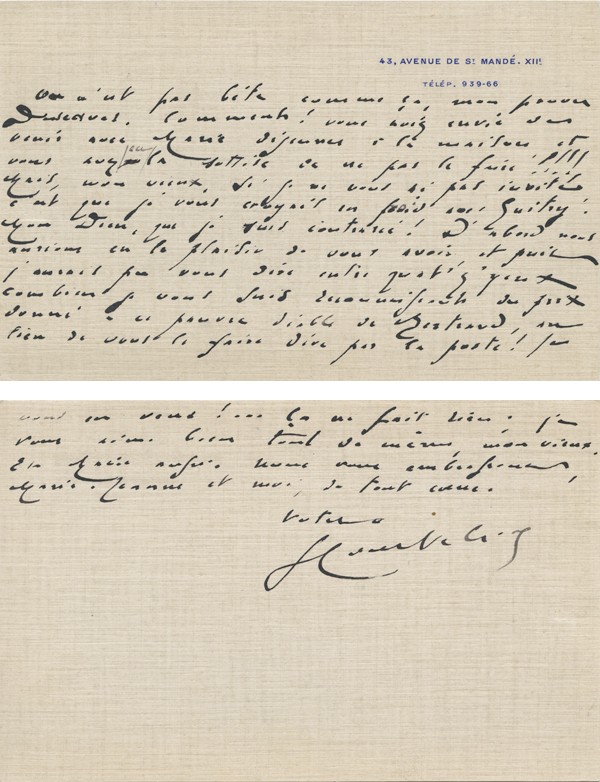 43, AVENUE DE ST MANDÉ. XIIE
TÉLÉP. 939-66
On n'est pas bête comme ça, mon pauvre
Comment! vous aviez envie de
venir avec Marie déjeuner à la maison et
vous avez eu la sottise de ne pas le faire!!!!!
Mais, mon vieux, si je ne vous ai pas invités
c'est que je vous croyais en froid avec Guitry!
Mon Dieu, que je suis contrarié! D'abord nous
aurions eu le plaisir de vous avoir, et puis
j'aurais pu vous dire entre quat'z'yeux
combien je vous suis reconnaissant du prix
donné à ce pauvre diable de Bertrand, au
lieu de vous le faire dire par la poste! Je
vous en veux!... Ça ne fait rien. Je
vous aime bien tout de même, mon vieux.
Et Marie aussi. Nous vous embrassons,
Marie-Jeanne et moi, de tout cœur.
Votre